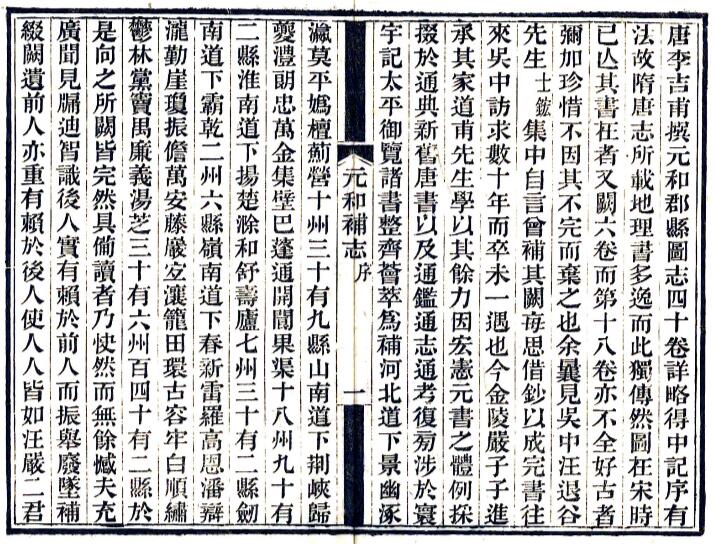 唐李吉甫撰元和郡縣圖志四十卷詳略得中記序有
法故隋唐志所載地理書多逸而此獨傳然圖在宋時
已亾其書在者又闕六卷而第十八卷亦不全好古者
彌加珍惜不因其不完而棄之也余曩見吳中汪退谷
先生士鋐集中自言曾補其闕每思借鈔以成完書往
來吳中訪求數十年而卒未一遇也今金陵嚴子子進
承其家道甫先生學以其餘力因宏憲元書之體例採
掇於通典新舊唐書以及通鑑通志通考復旁涉於寰
宇記太平御覽諸書整齊薈萃爲補河北道下景幽涿
元和補志 序 一
瀛莫平嬀檀薊營十州三十有九縣山南道下荆峽歸
夔澧朗忠萬金集壁巴蓬通開閬果渠十八州九十有
二縣淮南道下揚楚滁和舒壽廬七州三十有二縣劒
南道下霸乾二州六縣嶺南道下春新雷羅高恩潘辯
瀧勤崖瓊振儋萬安藤巖宜瀼籠田環古容牢白順繡
鬱林黨竇禺廉義湯芝三十有六州百四十有二縣於
是向之所闕皆完然具備讀者乃快然而無餘憾夫充
廣聞見牖迪智識後人實有賴於前人而振舉廢墜補
綴闕遺前人亦重有賴於後人使人人皆如汪嚴二君